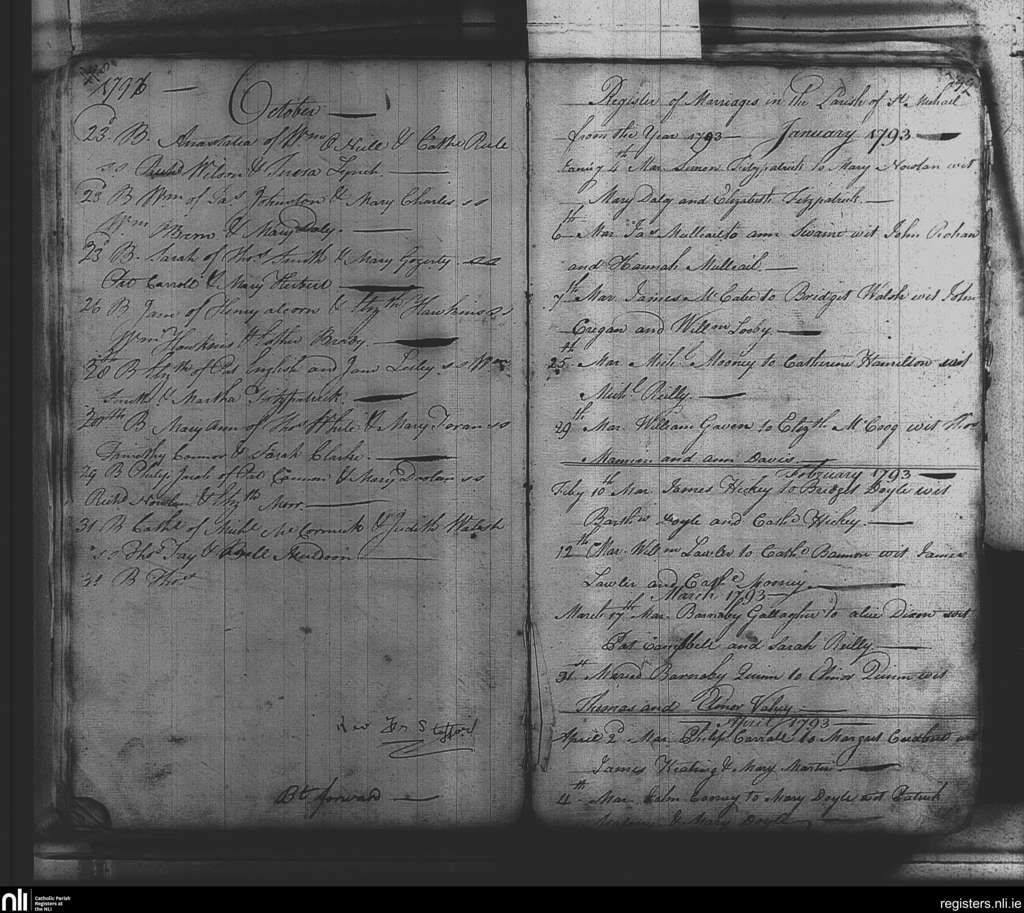 1796 —
October —
23 B. Anastatia of Wm O Neile & Cathe Reile
ss Richd Wilson & Teresa Lynch.
23 B Wm of Jas Johnston & Mary Charles ss
Wm & Mary Daly.
23 B. Sarah of Thos Smith & Mary Gogerty. ss
Carroll & Mary Herbert
26 B Jane of Henry alcorn & Elizth Hawkins ss
Wm Hawkins & Esther Brady.
28 B Elizth of Pat English and Jane Lesley ss Wm
Smith & Martha Fitzpatrick.
28th B Mary Ann of Thos White & Mary Doran ss
Timothy Connor & Sarah Clarke.
29 B Philip Jacob of Pat & Mary Doolan ss
Richd Nowlan & Elizth
31 B Cathe of Michl McCormick & Judith Walsh
ss Thos Fay &
31 B Thos
Rev Stafford
Bt forward
Register of Marriages in the Parish of St Michael
from the Year 1793 — January 1793 —
4th Mar. Simon Fitzpatrick to Mary Nowlan wit
Mary Daly and Elizabeth Fitzpatrick. —
6th Mar. Jas Mulleail to ann Swaine wit John
and Hannah Mulleail. —
7th Mar. James McCabe to Bridget Walsh wit John
Cregan and Willm Looby. —
25th Mar. Michl Mooney to Catherine Hamilton wit
Michl Reilly. —
29th Mar. William Gaven to Elizth McCoog wit Thos
and ann Davis.
February 1793 —
Feby 10th Mar. James Hickey to Bridget Doyle wit
Barthw Doyle and Cathe Hickey. —
12th Mar. Willm Lawler to Cathe Bannon wit James
Lawler and Cathe Mooney. —
March 1793 —
March 17th Mar. Barnaby Gallagher to alice Dixon wit
Pat Campbell and Sarah Reilly. —
31st Married Barnaby Quinn to Elinor Quinn wit
Thomas and Elinor
April 1793 —
April 2d Mar. Philip Carroll to Margret wit
James Keating & Mary Martin —
4th Mar. John to Mary Doyle wit Patrick
& Mary Doyle
nli
Catholic Parish
Registers at
the NLI
registers.nli.ie